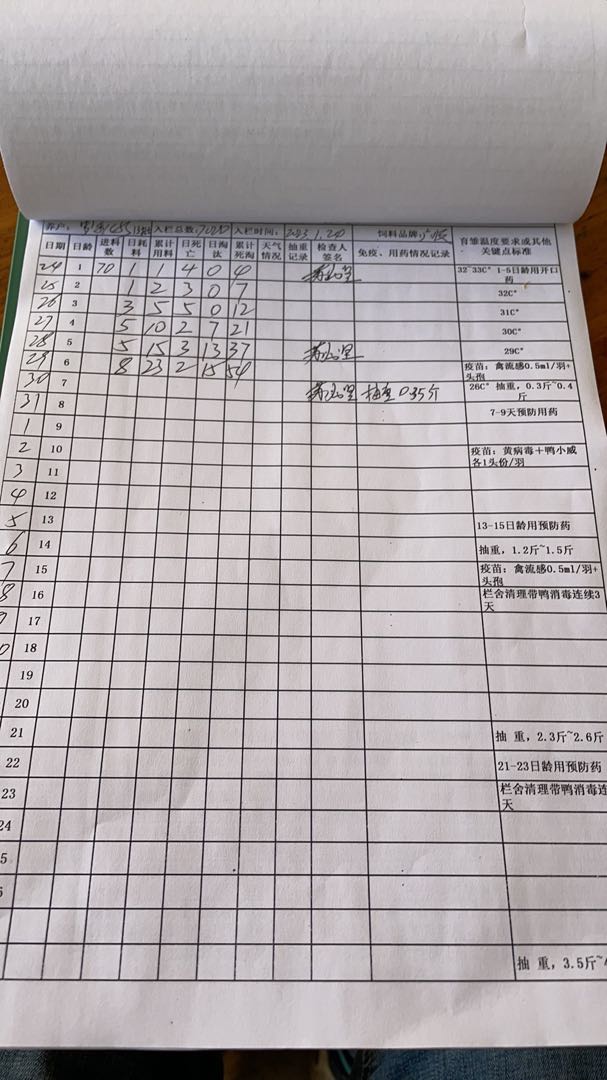 养户： 入栏总数： 入栏时间：2023.1.20 饲料品牌：
日期 日龄 进料数 日耗料 累计用料 日死亡 日淘汰 累计死淘 天气情况 抽重记录 检查人签名 免疫、用药情况记录 育雏温度要求或其他关键点标准
24 1 70 1 1 4 0 4 32~33C° 1-5日龄用开口药
25 2 1 2 3 0 7 32C°
26 3 3 5 5 0 12 31C°
27 4 5 10 2 7 21 30C°
28 5 5 15 3 13 37 29C°
29 6 8 23 2 15 54 疫苗：禽流感0.5ml/羽+头孢
30 7 抽重0.35斤 26C° 抽重，0.3斤~0.4斤
31 8 7-9天预防用药
1 9
2 10 疫苗：黄病毒+鸭小威各1头份/羽
3 11
4 12
5 13 13-15日龄用预防药
6 14 抽重，1.2斤~1.5斤
7 15 疫苗：禽流感0.5ml/羽+头孢
8 16 栏舍清理带鸭消毒连续3天
9 17
0 18
19
20
21 抽 重，2.3斤~2.6斤
22 21-23日龄用预防药
23 栏舍清理带鸭消毒连
24
5
抽 重，3.5斤~